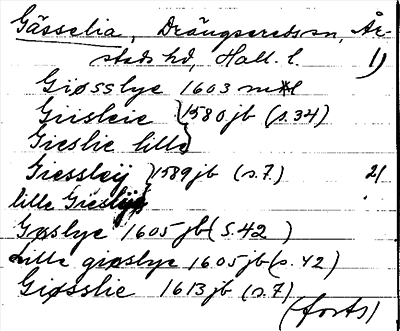 Gässelia, Drängsereds sn, År-
stads hd, Hall. l. 1)
Giøsslye 1603 mtl
Griisleie } 1580 jb (s.34)
Gieslie lille
Giessleÿ } 1589 jb (s.7.) 2)
lille Giesleÿ
Gøslye 1605 jb (s.42)
Lille giøslye 1605 jb (s.42)
Giøsslie 1613 jb (s.7)
(forts)